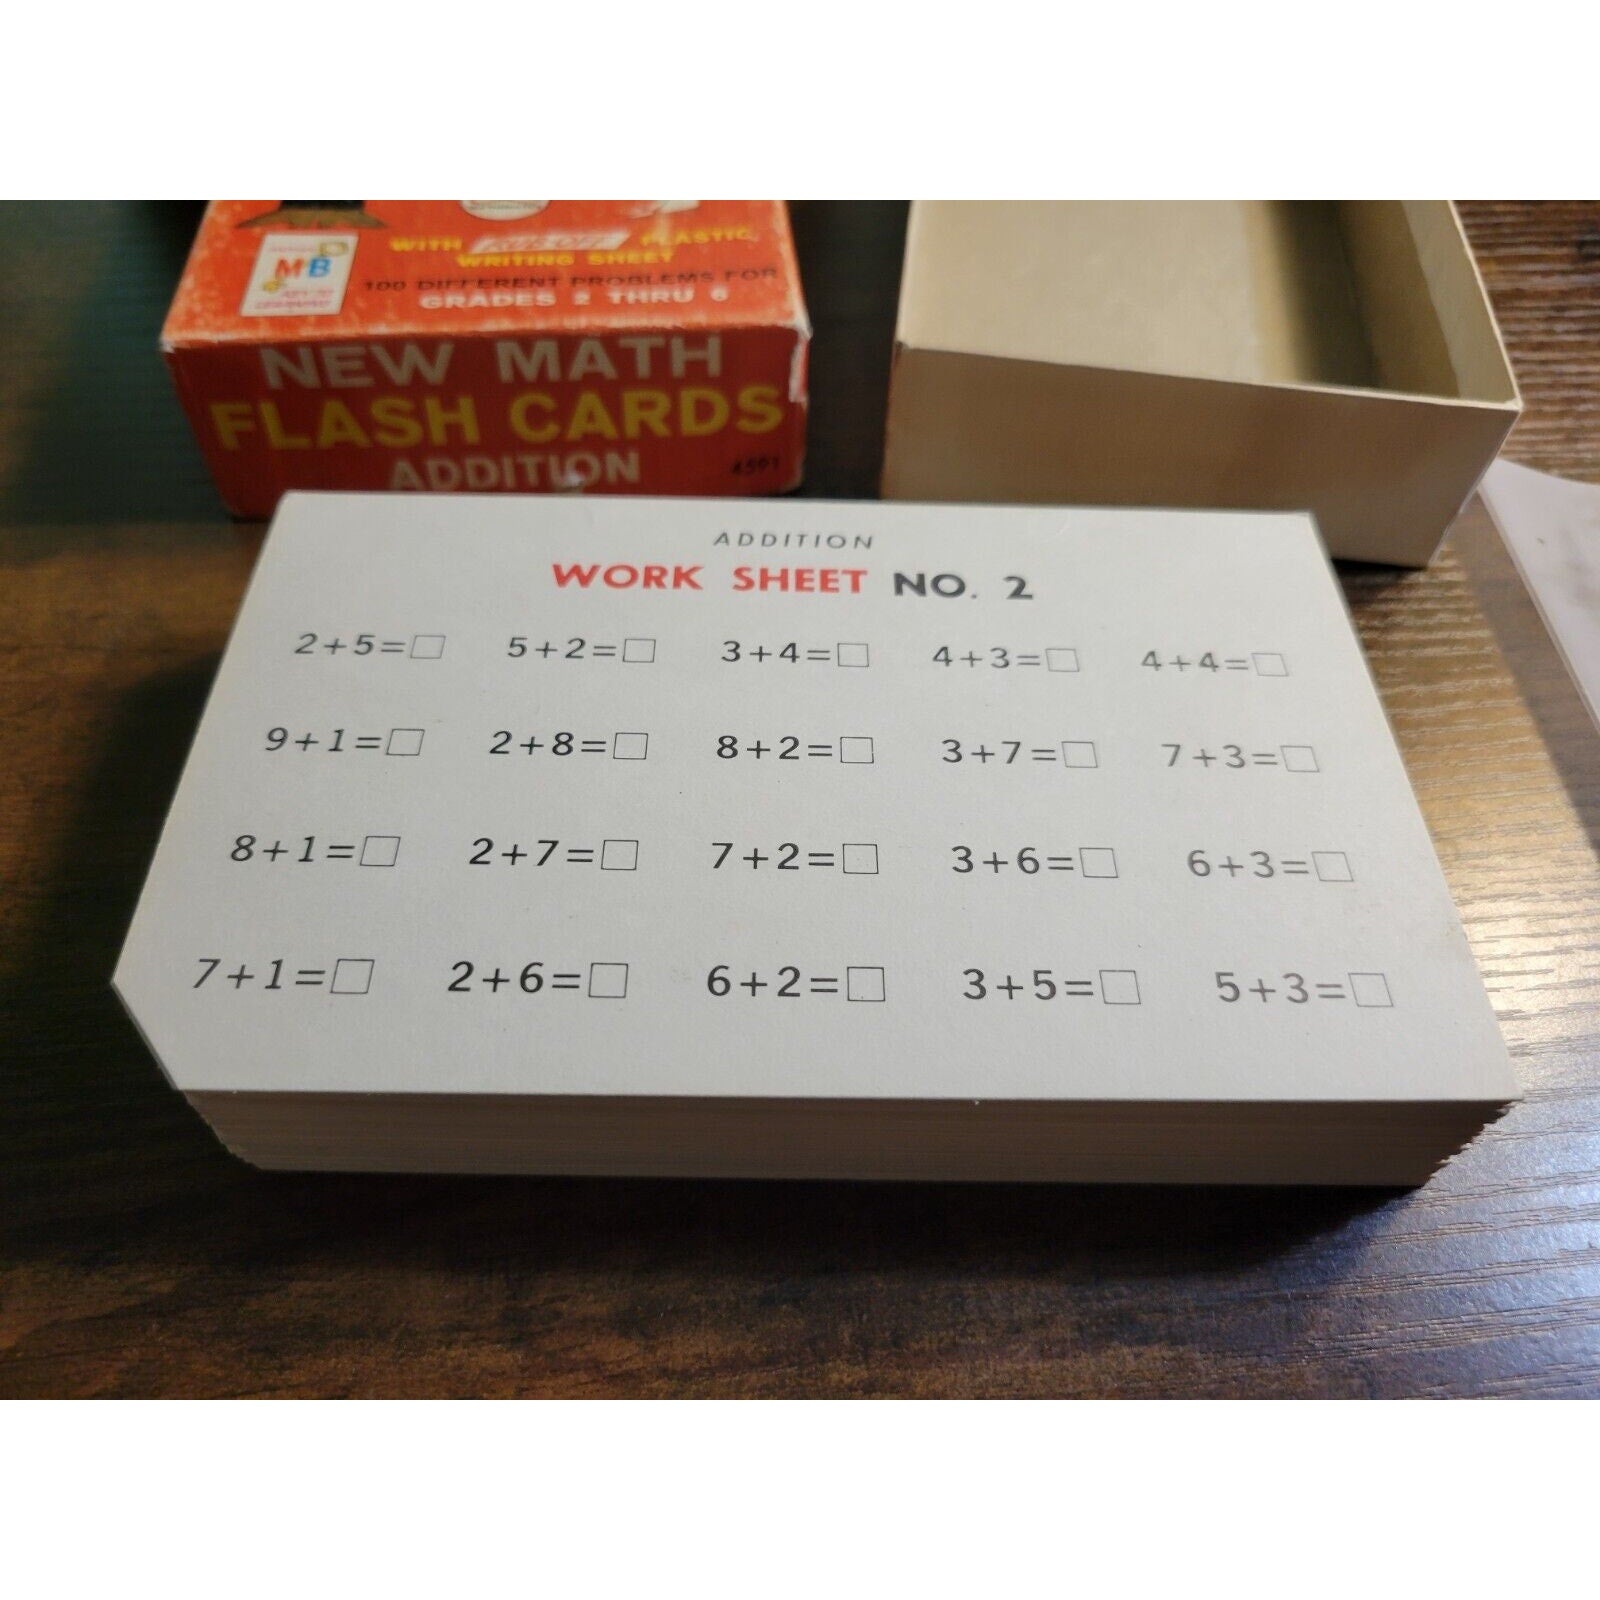 WITH RUB-OFF PLASTIC
WRITING SHEET
MB
KEY TO
LEARNING
100 DIFFERENT PROBLEMS FOR
GRADES 2 THRU 6
NEW MATH
FLASH CARDS
ADDITION
4591
ADDITION
WORK SHEET NO. 2
2+5=□ 5+2=□ 3+4=□ 4+3=□ 4+4=□
9+1=□ 2+8=□ 8+2=□ 3+7=□ 7+3=□
8+1=□ 2+7=□ 7+2=□ 3+6=□ 6+3=□
7+1=□ 2+6=□ 6+2=□ 3+5=□ 5+3=□